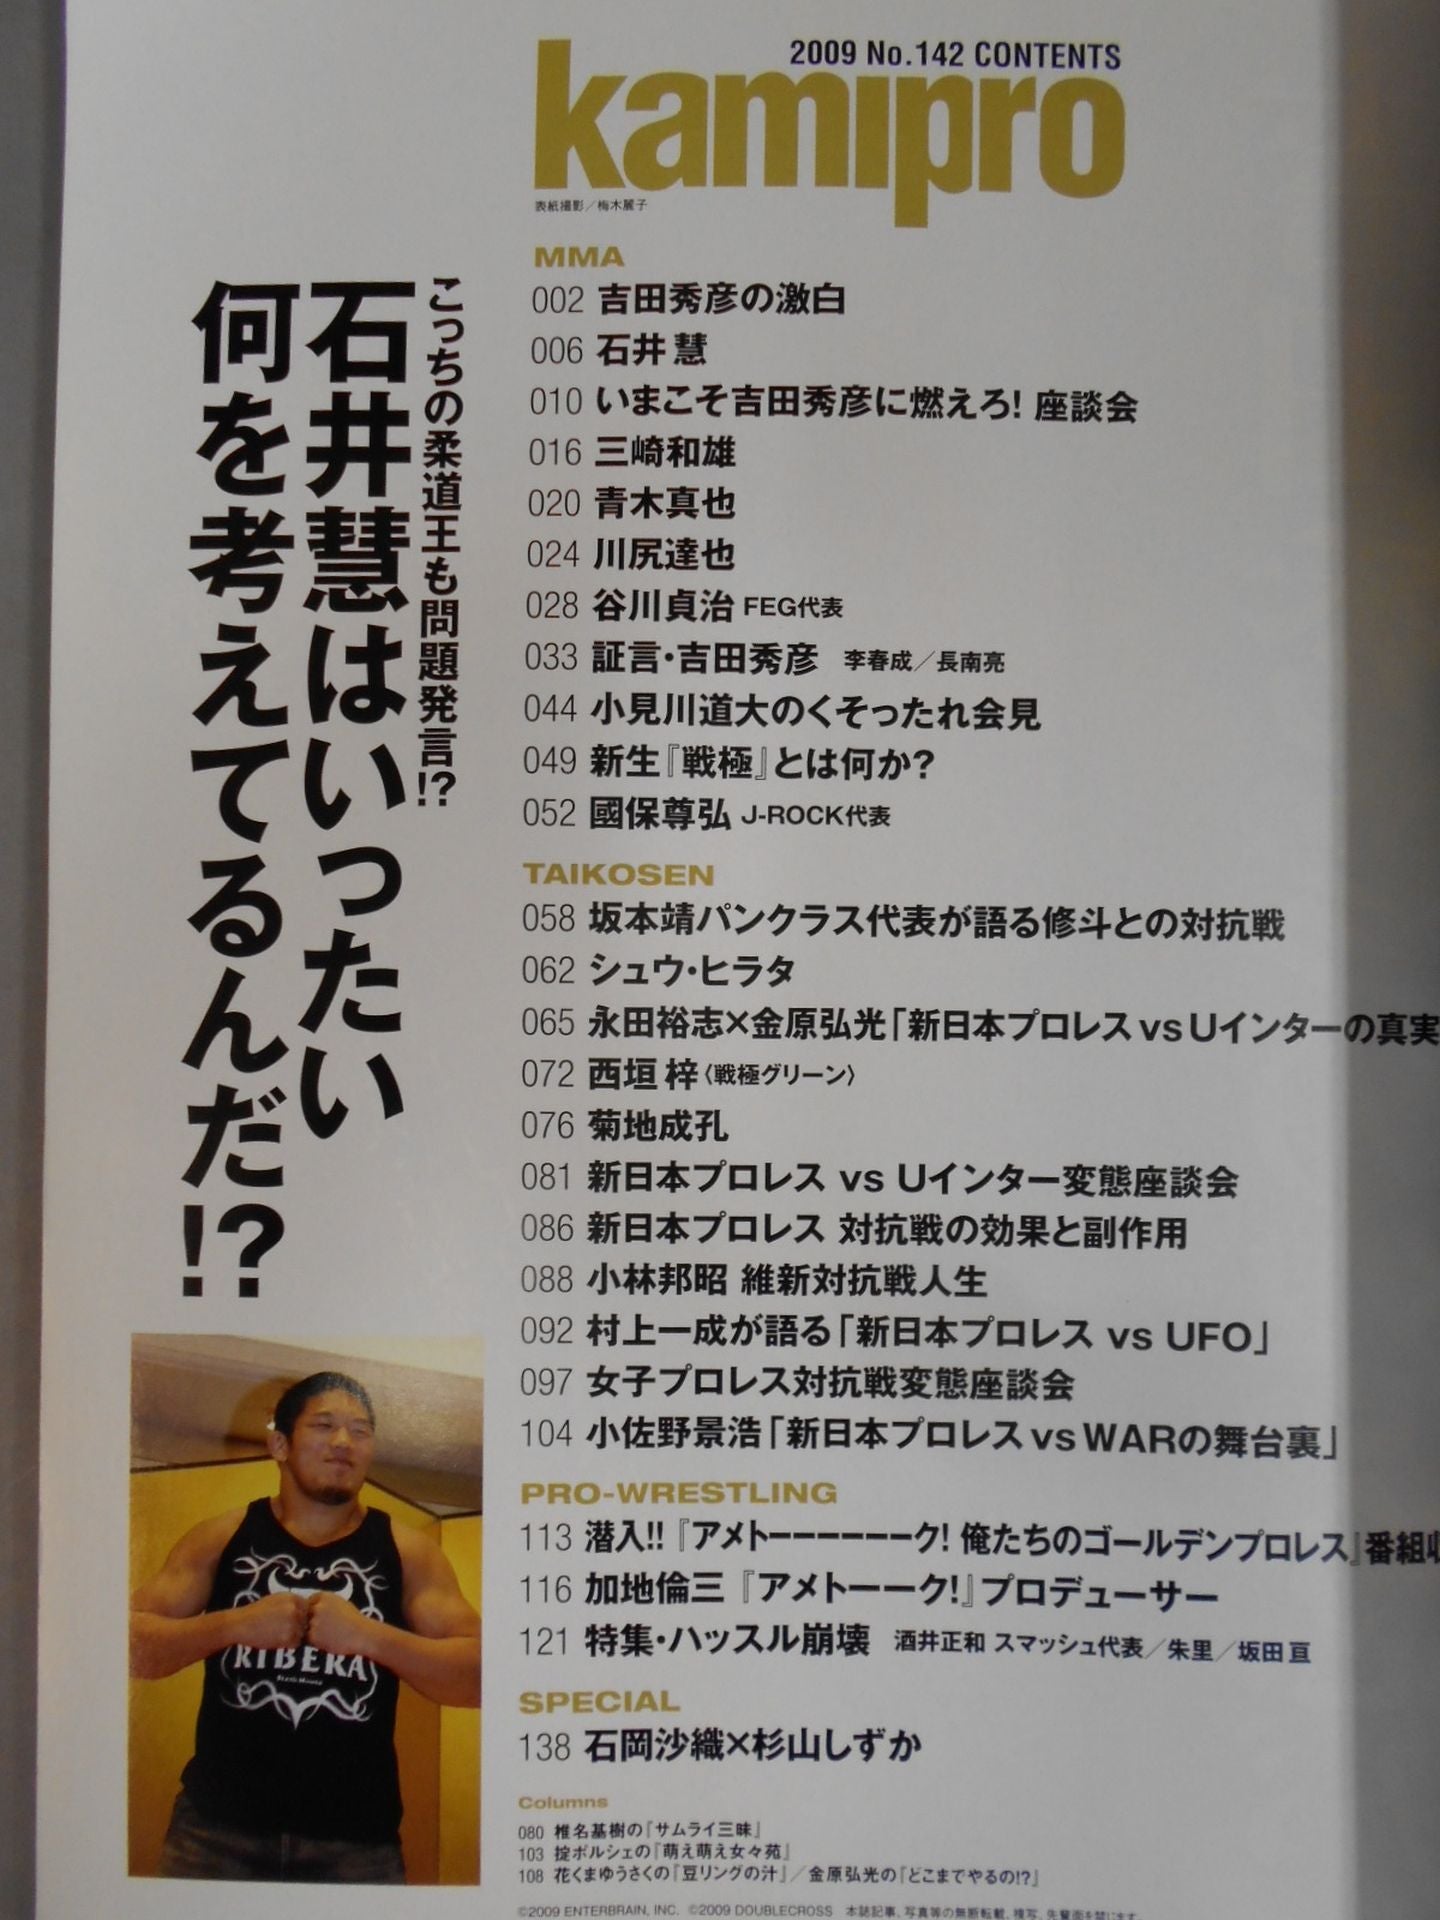 2009 No.142 CONTENTS
kamipro
表紙撮影／梅木麗子
こっちの柔道王も問題発言!?
石井慧はいったい
何を考えてるんだ!?
MMA
002 吉田秀彦の激白
006 石井 慧
010 いまこそ吉田秀彦に燃えろ! 座談会
016 三崎和雄
020 青木真也
024 川尻達也
028 谷川貞治 FEG代表
033 証言・吉田秀彦 李春成／長南亮
044 小見川道大のくそったれ会見
049 新生『戦極』とは何か?
052 國保尊弘 J-ROCK代表
TAIKOSEN
058 坂本靖パンクラス代表が語る修斗との対抗戦
062 シュウ・ヒラタ
065 永田裕志×金原弘光「新日本プロレスvsUインターの真実
072 西垣 梓〈戦極グリーン〉
076 菊地成孔
081 新日本プロレス vs Uインター変態座談会
086 新日本プロレス 対抗戦の効果と副作用
088 小林邦昭 維新対抗戦人生
092 村上一成が語る「新日本プロレス vs UFO」
097 女子プロレス対抗戦変態座談会
104 小佐野景浩「新日本プロレスvsWARの舞台裏」
PRO-WRESTLING
113 潜入!!『アメトーーーーーーク! 俺たちのゴールデンプロレス』番組収
116 加地倫三『アメトーーク!』プロデューサー
121 特集・ハッスル崩壊 酒井正和 スマッシュ代表／朱里／坂田 亘
SPECIAL
138 石岡沙織×杉山しずか
Columns
080 椎名基樹の『サムライ三昧』
103 掟ポルシェの『萌え萌え女々苑』
108 花くまゆうさくの『豆リングの汁』／金原弘光の『どこまでやるの!?』
©2009 ENTERBRAIN, INC. ©2009 DOUBLECROSS 本誌記事、写真等の無断転載、複写、先輩面を禁じます。
RIBERA
Steak House